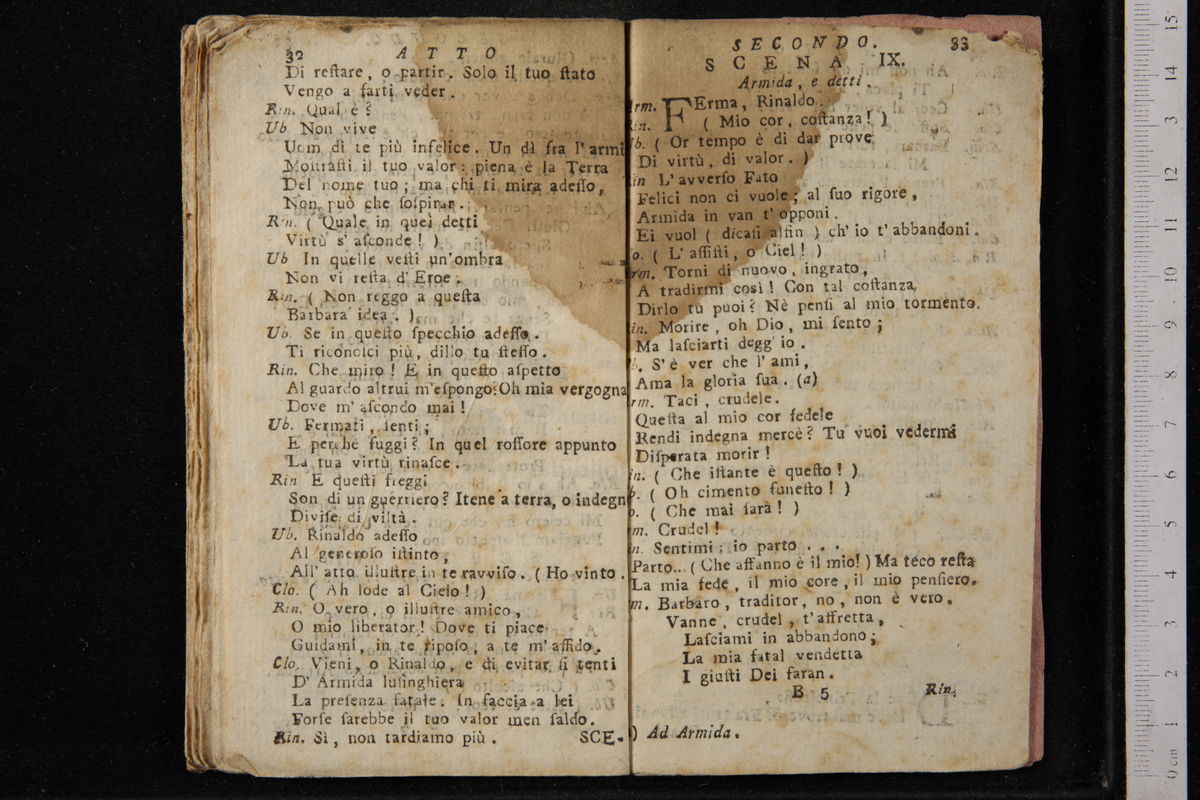 32 ATTO
Di reſtare, o partir. Solo il tuo ſtato
Vengo a farti veder.
Rin. Qual è?
Ub. Non vive
Uom di te più infelice. Un dì fra l'armi
Moſtraſti il tuo valor: piena è la Terra
Del nome tuo; ma chi ti mira adeſſo,
Non può che ſoſpirar.
Rin. (Quale in quei detti
Virtù s'aſconde!)
Ub In quelle veſti un'ombra
Non vi reſta d'Eroe.
Rin. (Non reggo a queſta
Barbara idea.)
Ub. Se in queſto ſpecchio adeſſo.
Ti riconoſci più, dillo tu ſteſſo.
Rin. Che miro! E in queſto aſpetto
Al guardo altrui m'eſpongo? Oh mia vergogna
Dove m'aſcondo mai!
Ub. Fermati, ſenti;
E perchè fuggi? In quel roſſore appunto
La tua virtù rinaſce.
Rin E queſti fregi
Son di un guerriero? Itene a terra, o indegn
Diviſe di viltà.
Ub. Rinaldo adeſſo
Al generoſo iſtinto,
All'atto illuſtre in te ravviſo. (Ho vinto.
Clo. (Ah lode al Cielo!)
Rin. O vero, o illuſtre amico,
O mio liberator! Dove ti piace
Guidami, in te ripoſo, a te m'affido.
Clo. Vieni, o Rinaldo, e di evitar ſi tenti
D'Armida luſinghiera
La preſenza fatale. In faccia a lei
Forſe ſarebbe il tuo valor men ſaldo.
Rin. Sì, non tardiamo più. SCE-
SECONDO. 33
SCENA IX.
Armida, e detti.
rm. FErma, Rinaldo.
in. (Mio cor, coſtanza!)
Ub. (Or tempo è di dar prove
Di virtù, di valor.)
in L'avverſo Fato
Felici non ci vuole; al ſuo rigore,
Armida in van t'opponi.
Ei vuol (dicaſi alfin) ch'io t'abbandoni.
o. (L'aſſiſti, o Ciel!)
rm. Torni di nuovo, ingrato,
A tradirmi così! Con tal coſtanza
Dirlo tu puoi? Nè penſi al mio tormento.
in. Morire, oh Dio, mi ſento;
Ma laſciarti degg'io.
b. S'è ver che l'ami,
Ama la gloria ſua. (a)
rm. Taci, crudele.
Queſta al mio cor fedele
Rendi indegna mercè? Tu vuoi vedermi
Diſperata morir!
in. (Che iſtante è queſto!)
b. (Oh cimento funeſto!)
o. (Che mai ſarà!)
m. Crudel!
n. Sentimi: io parto...
Parto... (Che affanno è il mio!) Ma teco reſta
La mia fede, il mio core, il mio penſiero.
m. Barbaro, traditor, no, non è vero.
Vanne, crudel, t'affretta,
Laſciami in abbandono;
La mia fatal vendetta
I giuſti Dei faran.
B 5 Rin.
) Ad Armida.